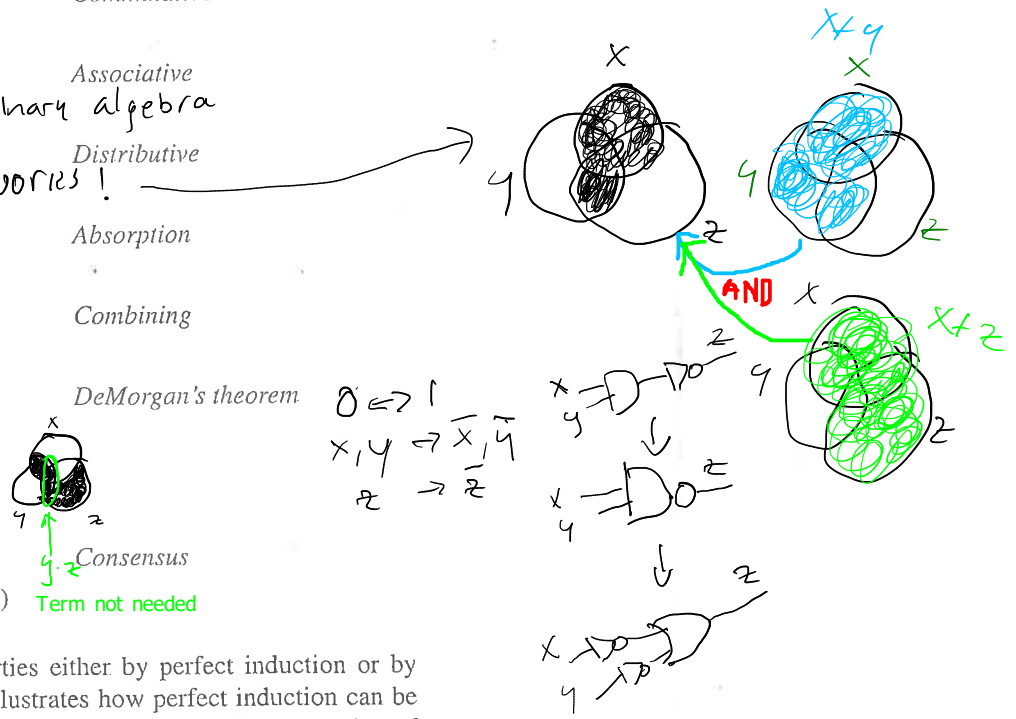 Associative
nary algebra
Distributive
works!
Absorption
Combining
DeMorgan's theorem
Consensus
y.z
Term not needed
)
x
y
z
0 <=> 1
x, y <=> x̅, y̅
z → z̅
x
y
z
x+y
x
y
z
AND
x
x+z
y
z
x
y
z
x
y
z
x
y
z
ties either by perfect induction or by
lustrates how perfect induction can be